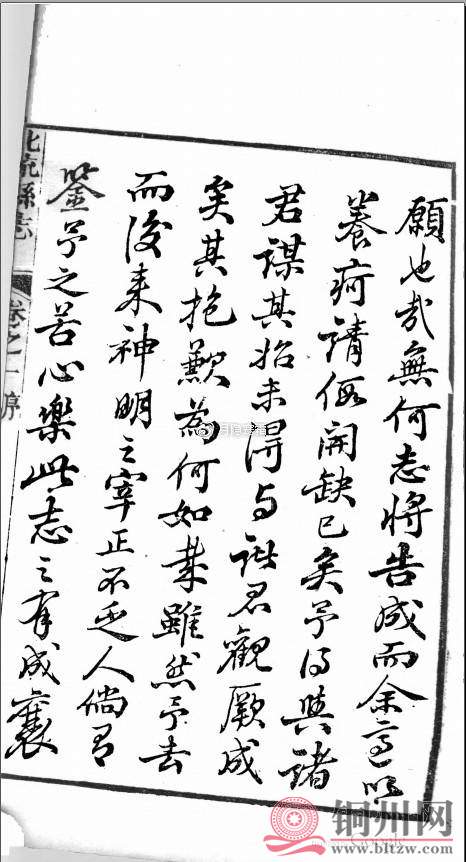 願也哉無何志將告成而余適以
養疴請假開缺已矣予得與諸
君謀其始未得与諸君觀厥成
矣其抱歉為何如業雖然予去
而後來神明之宰正不乏人倘有
鉴予之苦心樂此志之有成襄
北流縣志
卷之一序
铜州网
www.bltzw.com